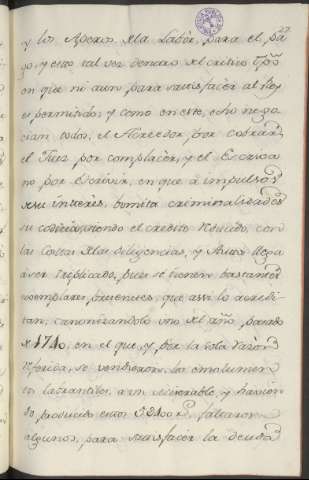 y los Aperos de la Labor, para el pa
go, y esto tal vez dentro del critico tpô
en que ni aun para satisfacer al Rey
es permitido, y como en este, echo nego
cian todos, el Acreedor por cobrar
el Juez por complacer, y el Escriva
no por Escrivir, en que â impulsos
de su interes, bomita criminalidades
su codicia, siendo el credito reducido, con
las Costas de las diligencias, y Autos llega
â ser triplicado, pues se tienen bastantes
exemplares presentes, que assi lo acredi
tan, canonizandolo uno del año pasado
de 1740, en el que, y por la sola razon
referida, se vendieron los emolumen
tos labrantiles, a un miserable, y havien
do producido estos 3200 rs, faltaron
algunos, para satisfacer la deuda